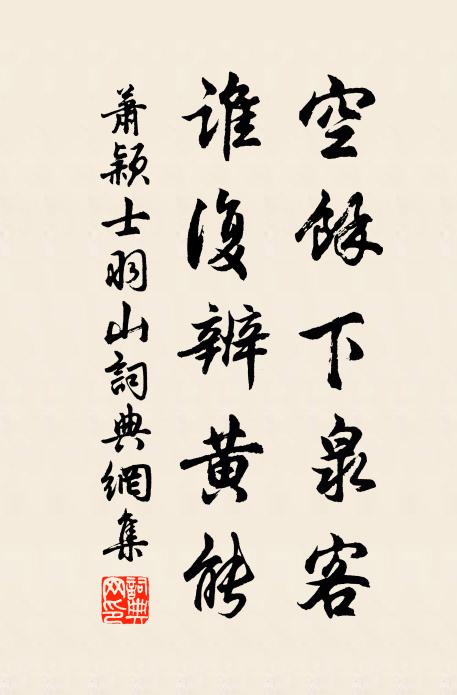 空餘下泉客
誰復辨黄能
蕭穎士羽山詞典網集
詞典網印